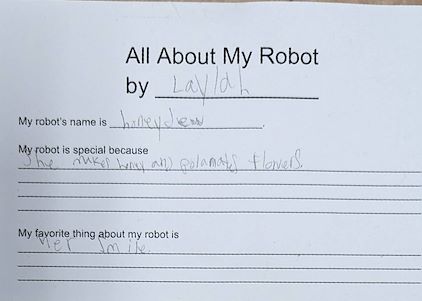 All About My Robot
by Laylah
My robot's name is honeydew.
My robot is special because
She makes honey and polamats flowers.
My favorite thing about my robot is
Her Smile.